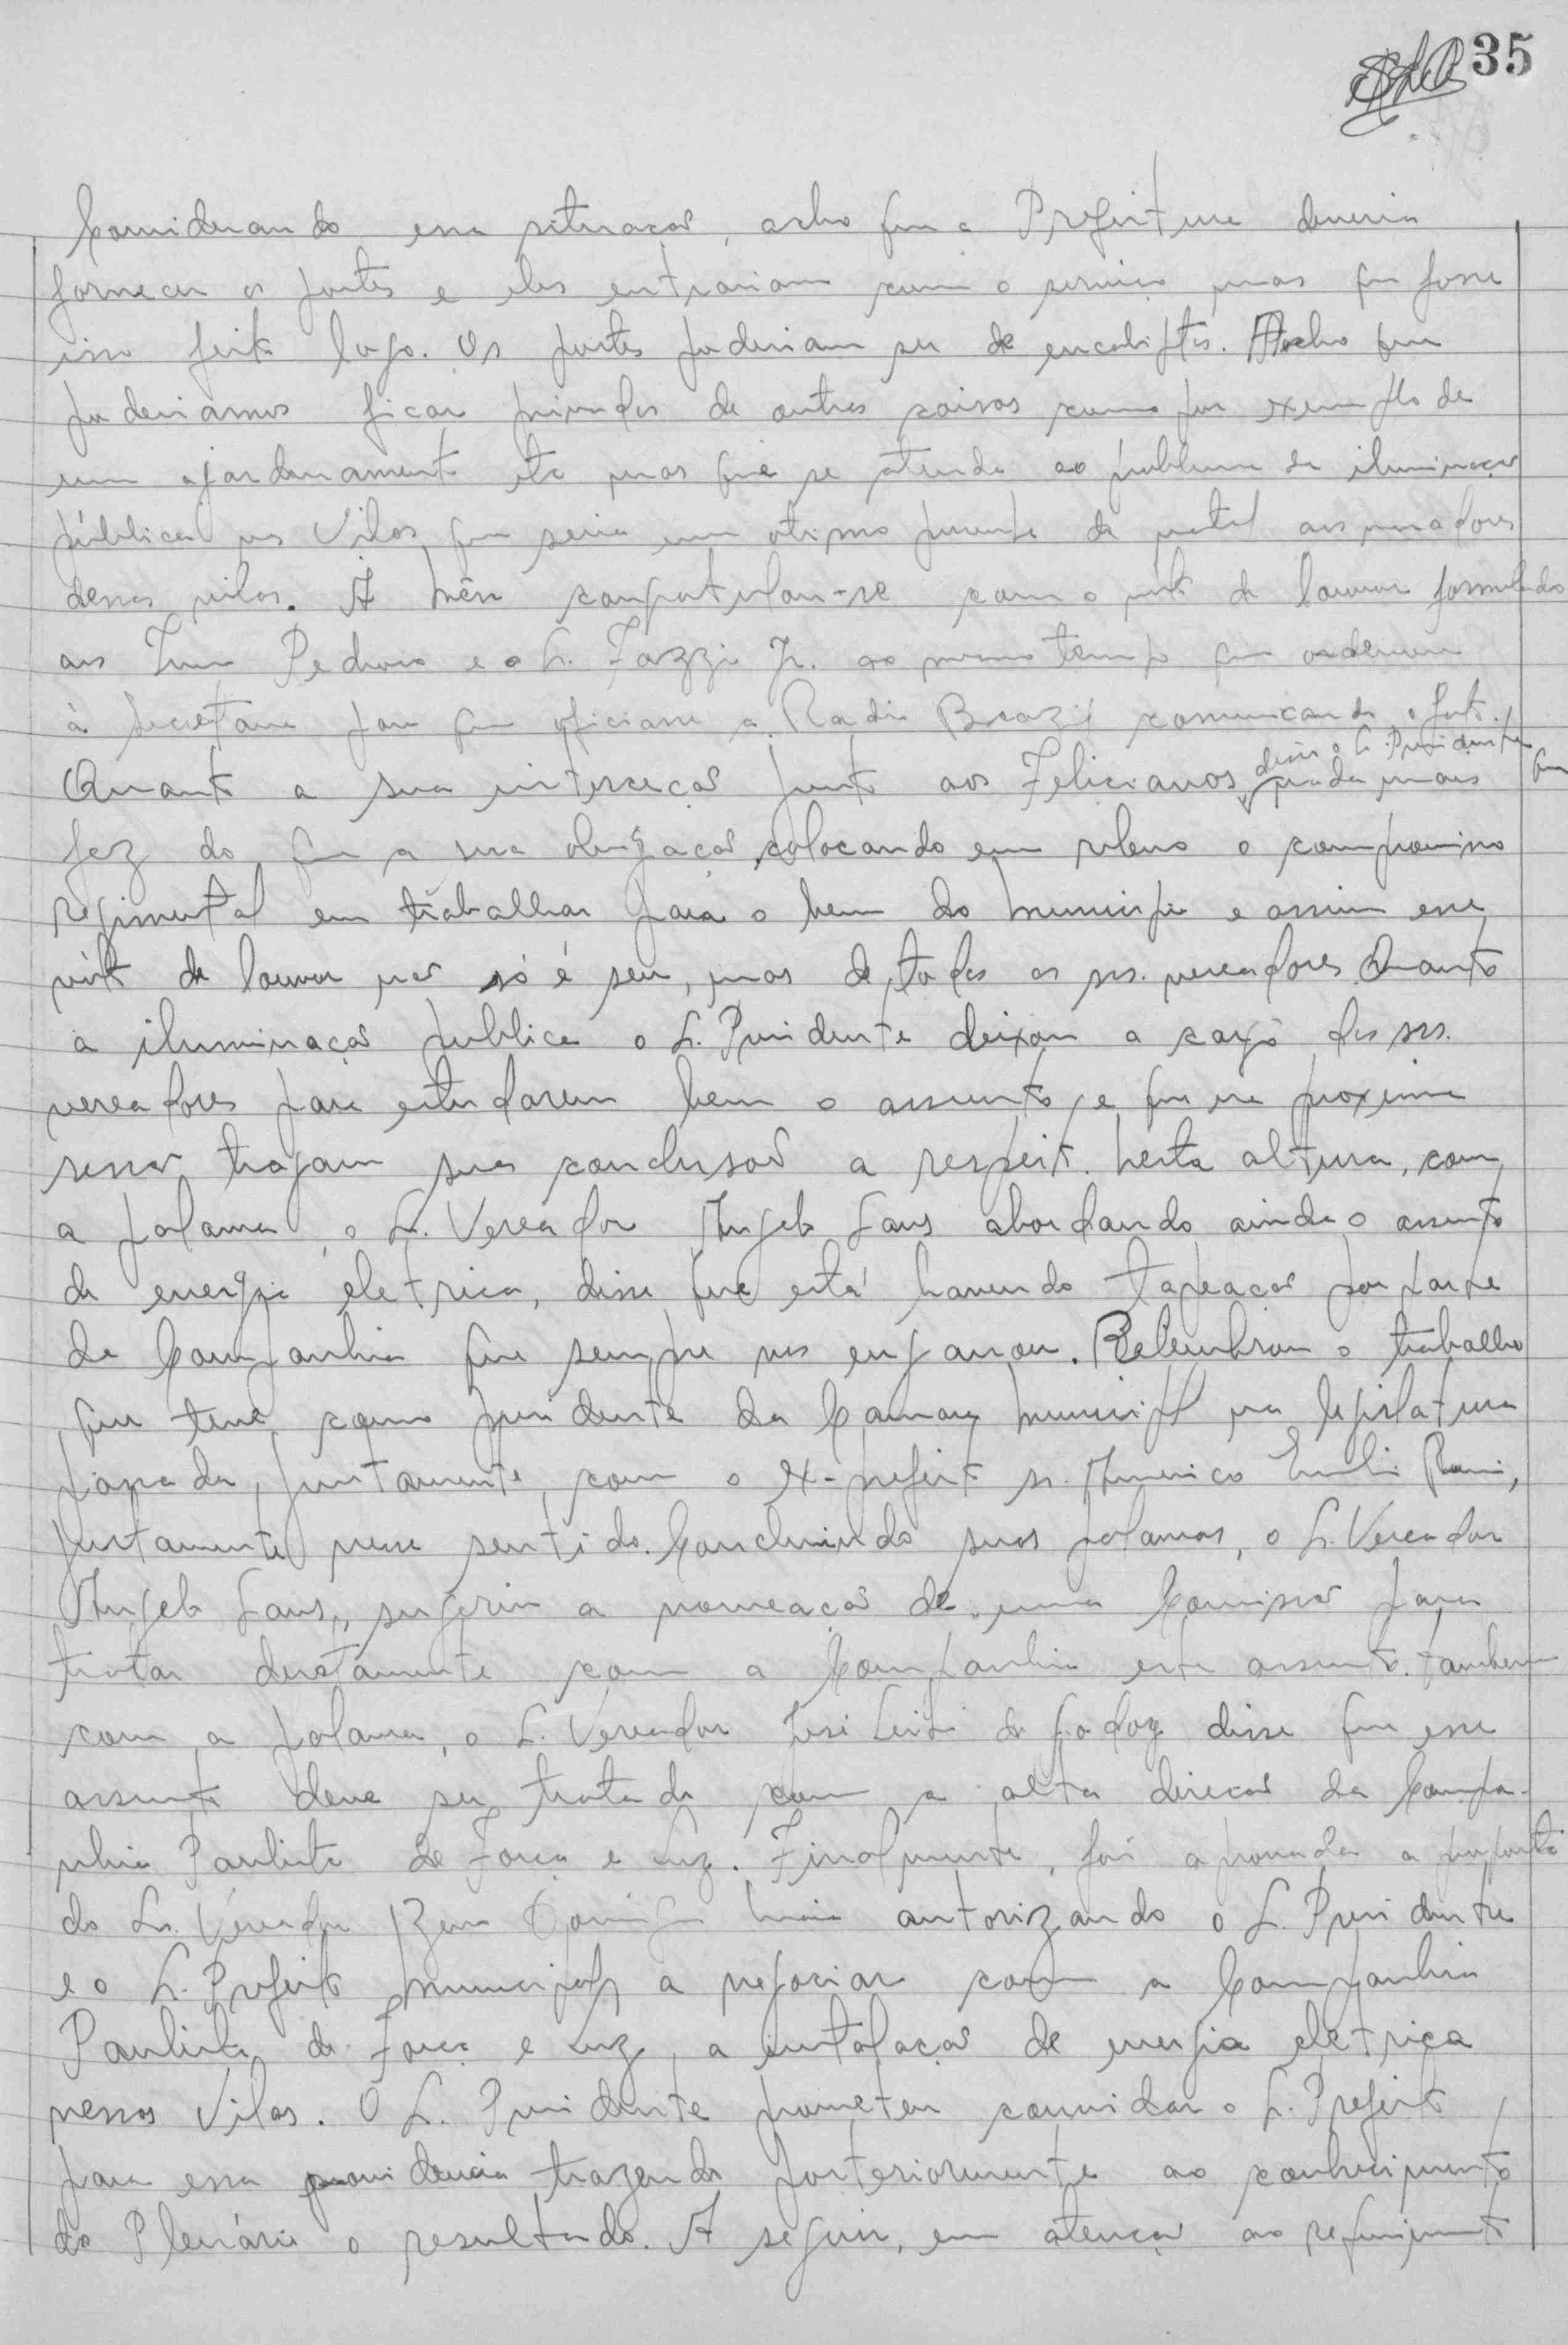 35
Considerando essa situação, acho que a Prefeitura deveria
fornecer os postes e eles entrariam com o serviço mas que fosse
isso feito logo. Os postes poderiam ser de encaliptos. Acho que
poderiamos ficar privados de outras coisas como por exemplo de
um ajardinamento etc mas que se atenda ao problema da iluminação
pública nas Vilas, que seria um otimo presente de natal aos moradores
dessas vilas. A Mêsa congratulou-se com o voto de louvor formulado
aos Pedroso e o Sr. Fazzi Jr. ao mesmo tempo que ordenou
à secretaria para que oficiasse a Radio Brazil comunicando o fato.
Quanto a sua interceção junto aos Felicianos, disse o Sr. Presidente que nada mais
fez do que a sua obrigação, colocando em relevo o compromisso
regimental em trabalhar para o bem do município e assim esse
vóto de louvor não só é seu, mas de todos os srs. vereadores. Quanto
a iluminação publica o Sr. Presidente deixou a cargo dos srs.
vereadores para estudarem bem o assunto, e que na proxima
sessão tragam sua conclusão a respeito. Nesta altura, com
a palavra, o Sr. Vereador Angelo Sans abordando ainda o assunto
da energia eletrica, disse que está havendo tapeação por parte
da Companhia que sempre nos enganou. Relembrou o trabalho
que teve como presidente da Camara Municipal na legislatura
passada, juntamente com o ex-prefeito sr. Americo Emilio Romi,
justamente nesse sentido. Concluindo suas palavras, o Sr. Vereador
Angelo Sans, sugeriu a nomeação de uma Comissão para
tratar diretamente com a Companhia este assunto. Tambem
com a palavra, o Sr. Vereador José Leite de Godoy disse que esse
assunto deve ser tratado com a alta direção da Compa-
nhia Paulista de Força e Luz. Finalmente, foi aprovada a proposta
do Sr. Vereador autorizando o Sr. Presidente
e o Sr. Prefeito Municipal a negociar com a Companhia
Paulista de Força e Luz, a instalação de energia eletrica
nessas Vilas. O Sr. Presidente prometeu convidar o Sr. Prefeito
para essa providencia trazendo posteriormente ao conhecimento
do Plenário o resultado. A seguir, em atenção ao requerimento